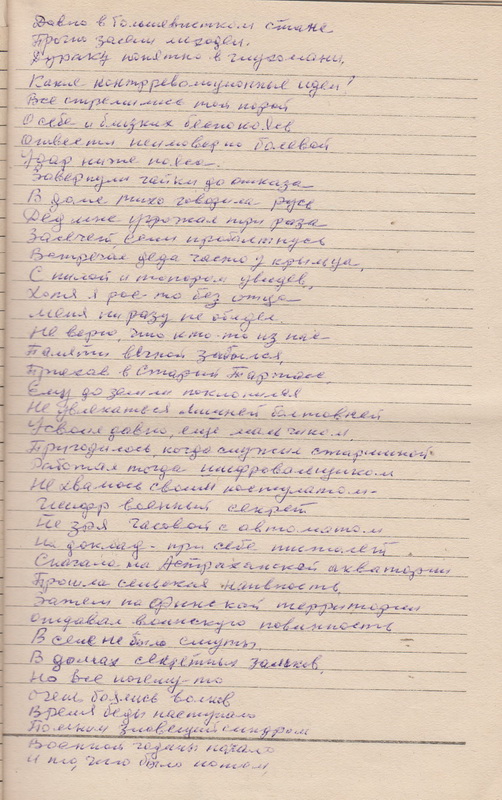 Давно в большевистском стане
Прочно засели
Дураку понятно в глухомани,
Какие контрреволюционные идеи?
Все стремились той порой
О себе и близких беспокоясь
Отвести неимоверно болевой
Удар ниже пояса.
Завернули гайки до отказа
В доме тихо говорила Русь
Дед мне угрожал три раза
Залечет если проболтнусь
Встречал деда часто у крыльца,
С пилой и топором увидев,
Хотя я рос то без отца
Меня ни разу не обидел.
Не верю, что кто-то из нас
Памяти вечной забылся
Приехав в Старый
Ему до земли поклонился
Не увлекаться лишней болтовнёй
Усвоил давно, ещё мальчиком
Пригодилось, когда служил старшиной
Работал тогда шифровальщиком
Не хвалюсь своим постулатом
Шифр военный секрет
Не зря часовой с автоматом
На доклад - при себе пистолет
Сначала на Астраханской акватории
Прошла сельская наивность,
Затем на Финской территории
отдавал воинскую повинность
В селе не было смуты,
В домах секретных замков,
Но все почему-то
очень боялись волков
Время беды наступало
Полным зловещий синдром
Военной годины начало
И то, что было потом,